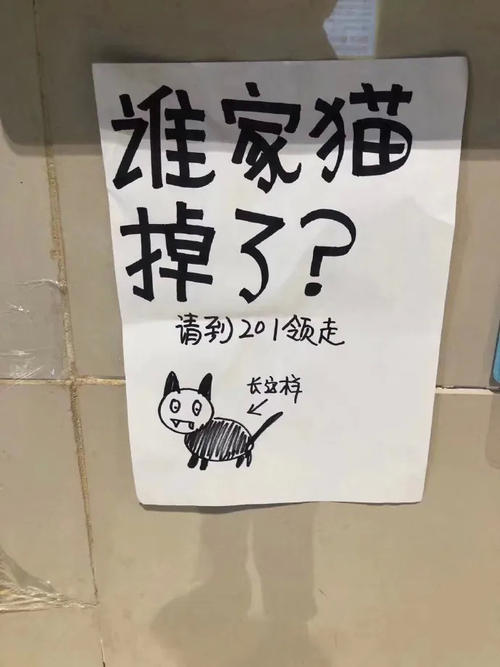 谁家猫
掉了?
请到201领走
长这样